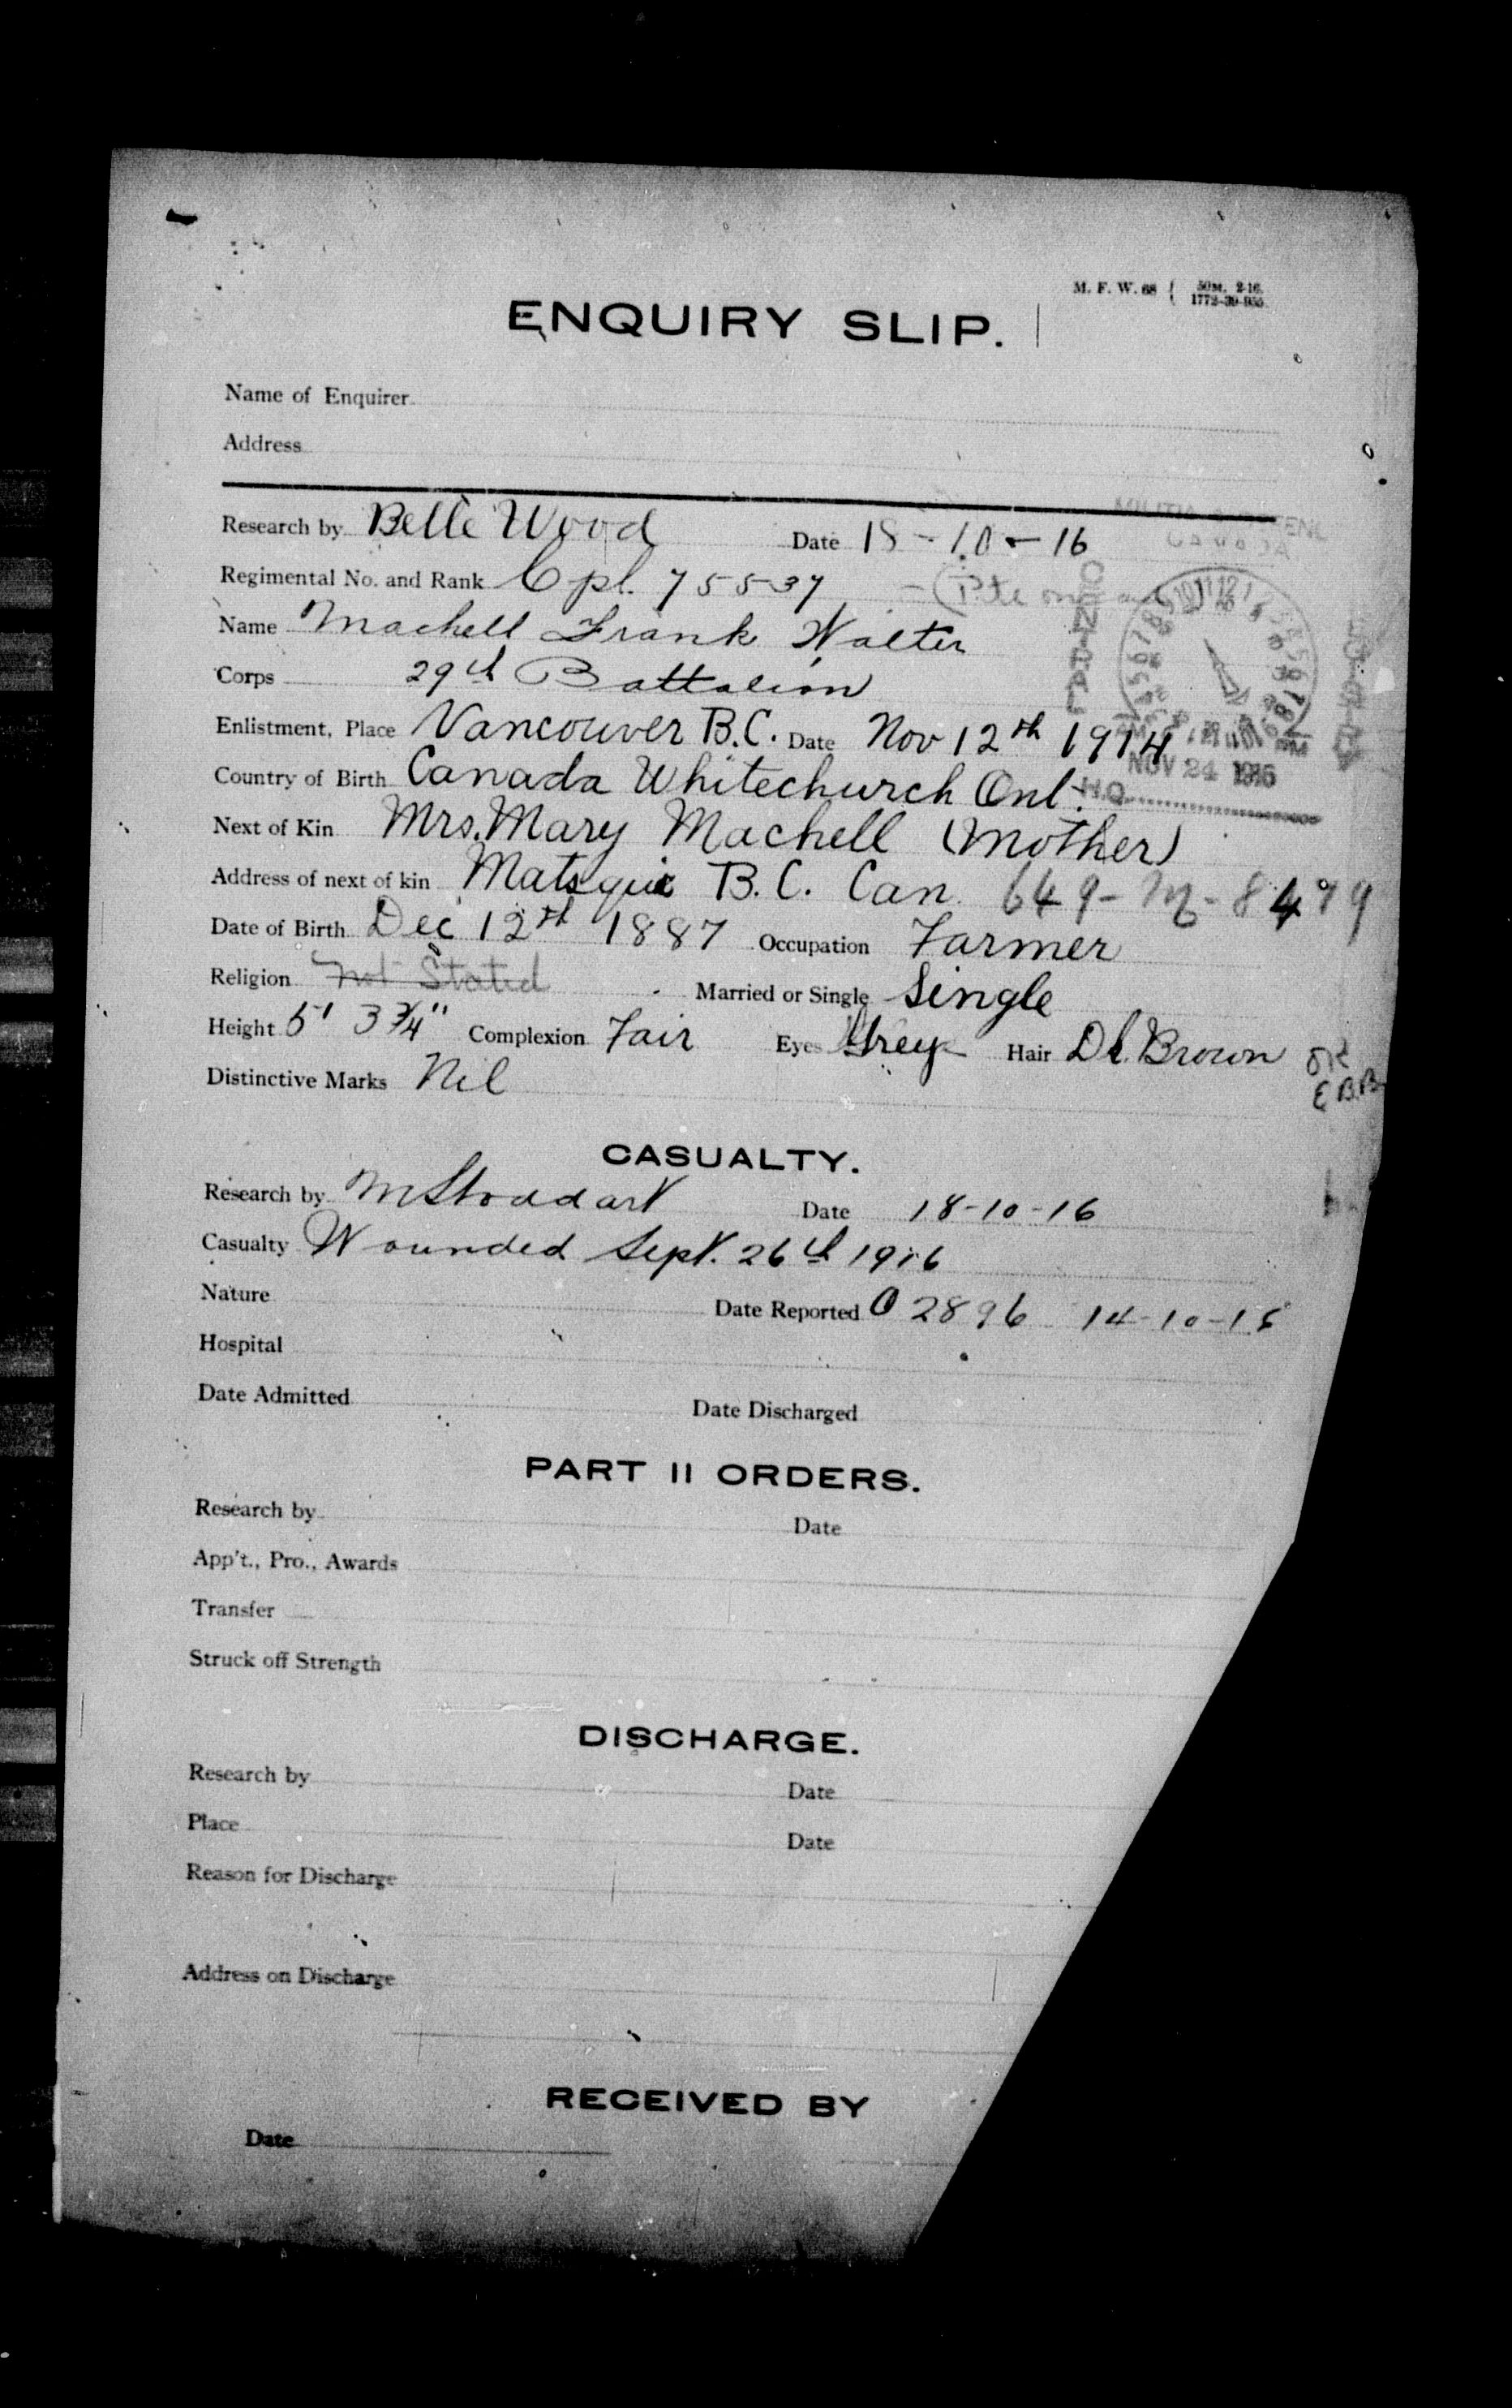 M. F. W. 68 { 50M. 2-16.
1772-39-955.
ENQUIRY SLIP.
Name of Enquirer
Address
Research by Belle Wood Date 18-10-16
Regimental No. and Rank Cpl. 75537 - (Pte on
Name Machell Frank Walter
Corps 29th Battalion
Enlistment, Place Vancouver B.C. Date Nov 12th 1914
NOV 24 1916
Country of Birth Canada Whitechurch Ont. H.Q.
Next of Kin Mrs. Mary Machell (Mother)
Address of next of kin Matsqui B.C. Can. 649-M-8479
Date of Birth Dec 12th 1887 Occupation Farmer
Religion Not Stated Married or Single Single
Height 5' 3 3/4" Complexion Fair Eyes Grey Hair Dk. Brown OK
Distinctive Marks Nil E.B.B.
CASUALTY.
Research by M Stoddart Date 18-10-16
Casualty Wounded Sept. 26th 1916
Nature Date Reported O 2896 14-10-16
Hospital
Date Admitted Date Discharged
PART II ORDERS.
Research by Date
App't., Pro., Awards
Transfer
Struck off Strength
DISCHARGE.
Research by Date
Place Date
Reason for Discharge
Address on Discharge
RECEIVED BY
Date